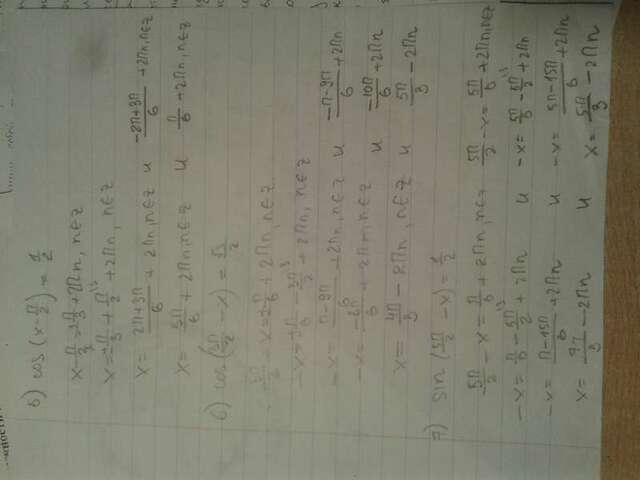 5) cos(x-π/2) = 1/2
x-π/2 = ±π/3+2πn, n∈z
x = ±π/3 + π/2 + 2πn, n∈z
x = 2π+3π/6 + 2πn, n∈z и -2π+3π/6 + 2πn, n∈z
x = 5π/6 + 2πn, n∈z и π/6 + 2πn, n∈z
6) cos(3π/2 - x) = √3/2
3π/2 - x = ±π/6 + 2πn, n∈z
-x = ±π/6 - 3π/2 + 2πn, n∈z
-x = π-9π/6 + 2πn, n∈z и -π-9π/6 + 2πn
-x = -8π/6 + 2πn, n∈z и -10π/6 + 2πn
x = 4π/3 - 2πn, n∈z и 5π/3 - 2πn
7) sin(5π/2 - x) = 1/2
5π/2 - x = π/6 + 2πn, n∈z 5π/2 - x = 5π/6 + 2πn, n∈z
-x = π/6 - 5π/2 + 2πn и -x = 5π/6 - 5π/2 + 2πn
-x = π-15π/6 + 2πn и -x = 5π-15π/6 + 2πn
x = 7π/3 - 2πn и x = 5π/3 - 2πn